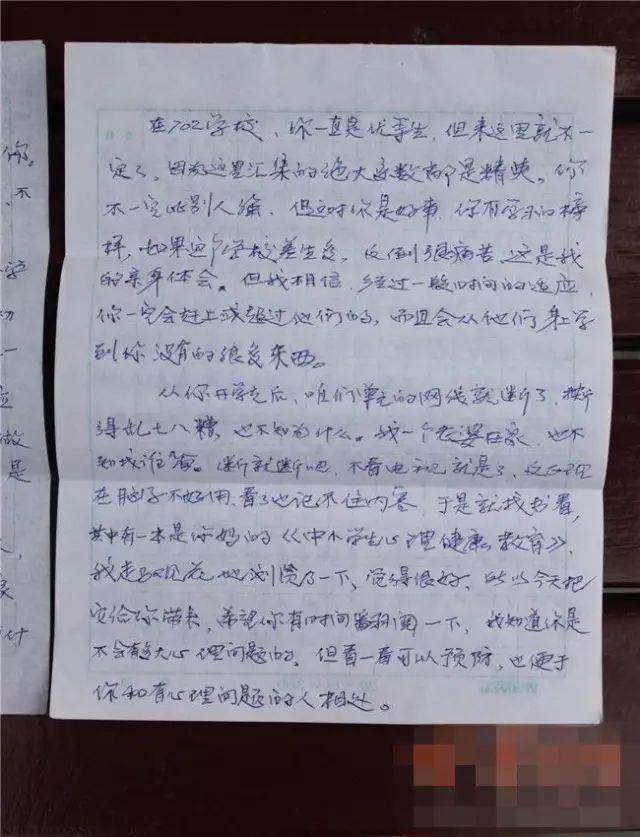 你。
不
学
切
一
应
做
是
人,
家
什
在702学校,你一直是优等生,但来这里就不一
定了,因为这里汇集的绝大多数都是精英。你
不一定比别人强,但这对你是好事,你有学习的榜
样,如果这个学校差生多,反倒很痛苦,这是我
的亲身体会。但我相信,经过一段时间的适应,
你一定会赶上或超过他们的,而且会从他们身上学
到你没有的很多东西。
从你开学走后,咱们单元的网线就断了,断
得乱七八糟,也不知为什么。我一个老婆在家,也不
知找谁。断就断吧,不看电视就是了,反正现
在脑子不好用,看了也记不住内容,于是就找书看,
其中有一本是你妈的《中小学生心理健康教育》,
我走马观花地浏览了一下,觉得很好,所以今天把
它给你带来,希望你有时间翻阅一下,我知道你是
不会有太大心理问题的。但看一看可以预防,也便于
你和有心理问题的人相处。